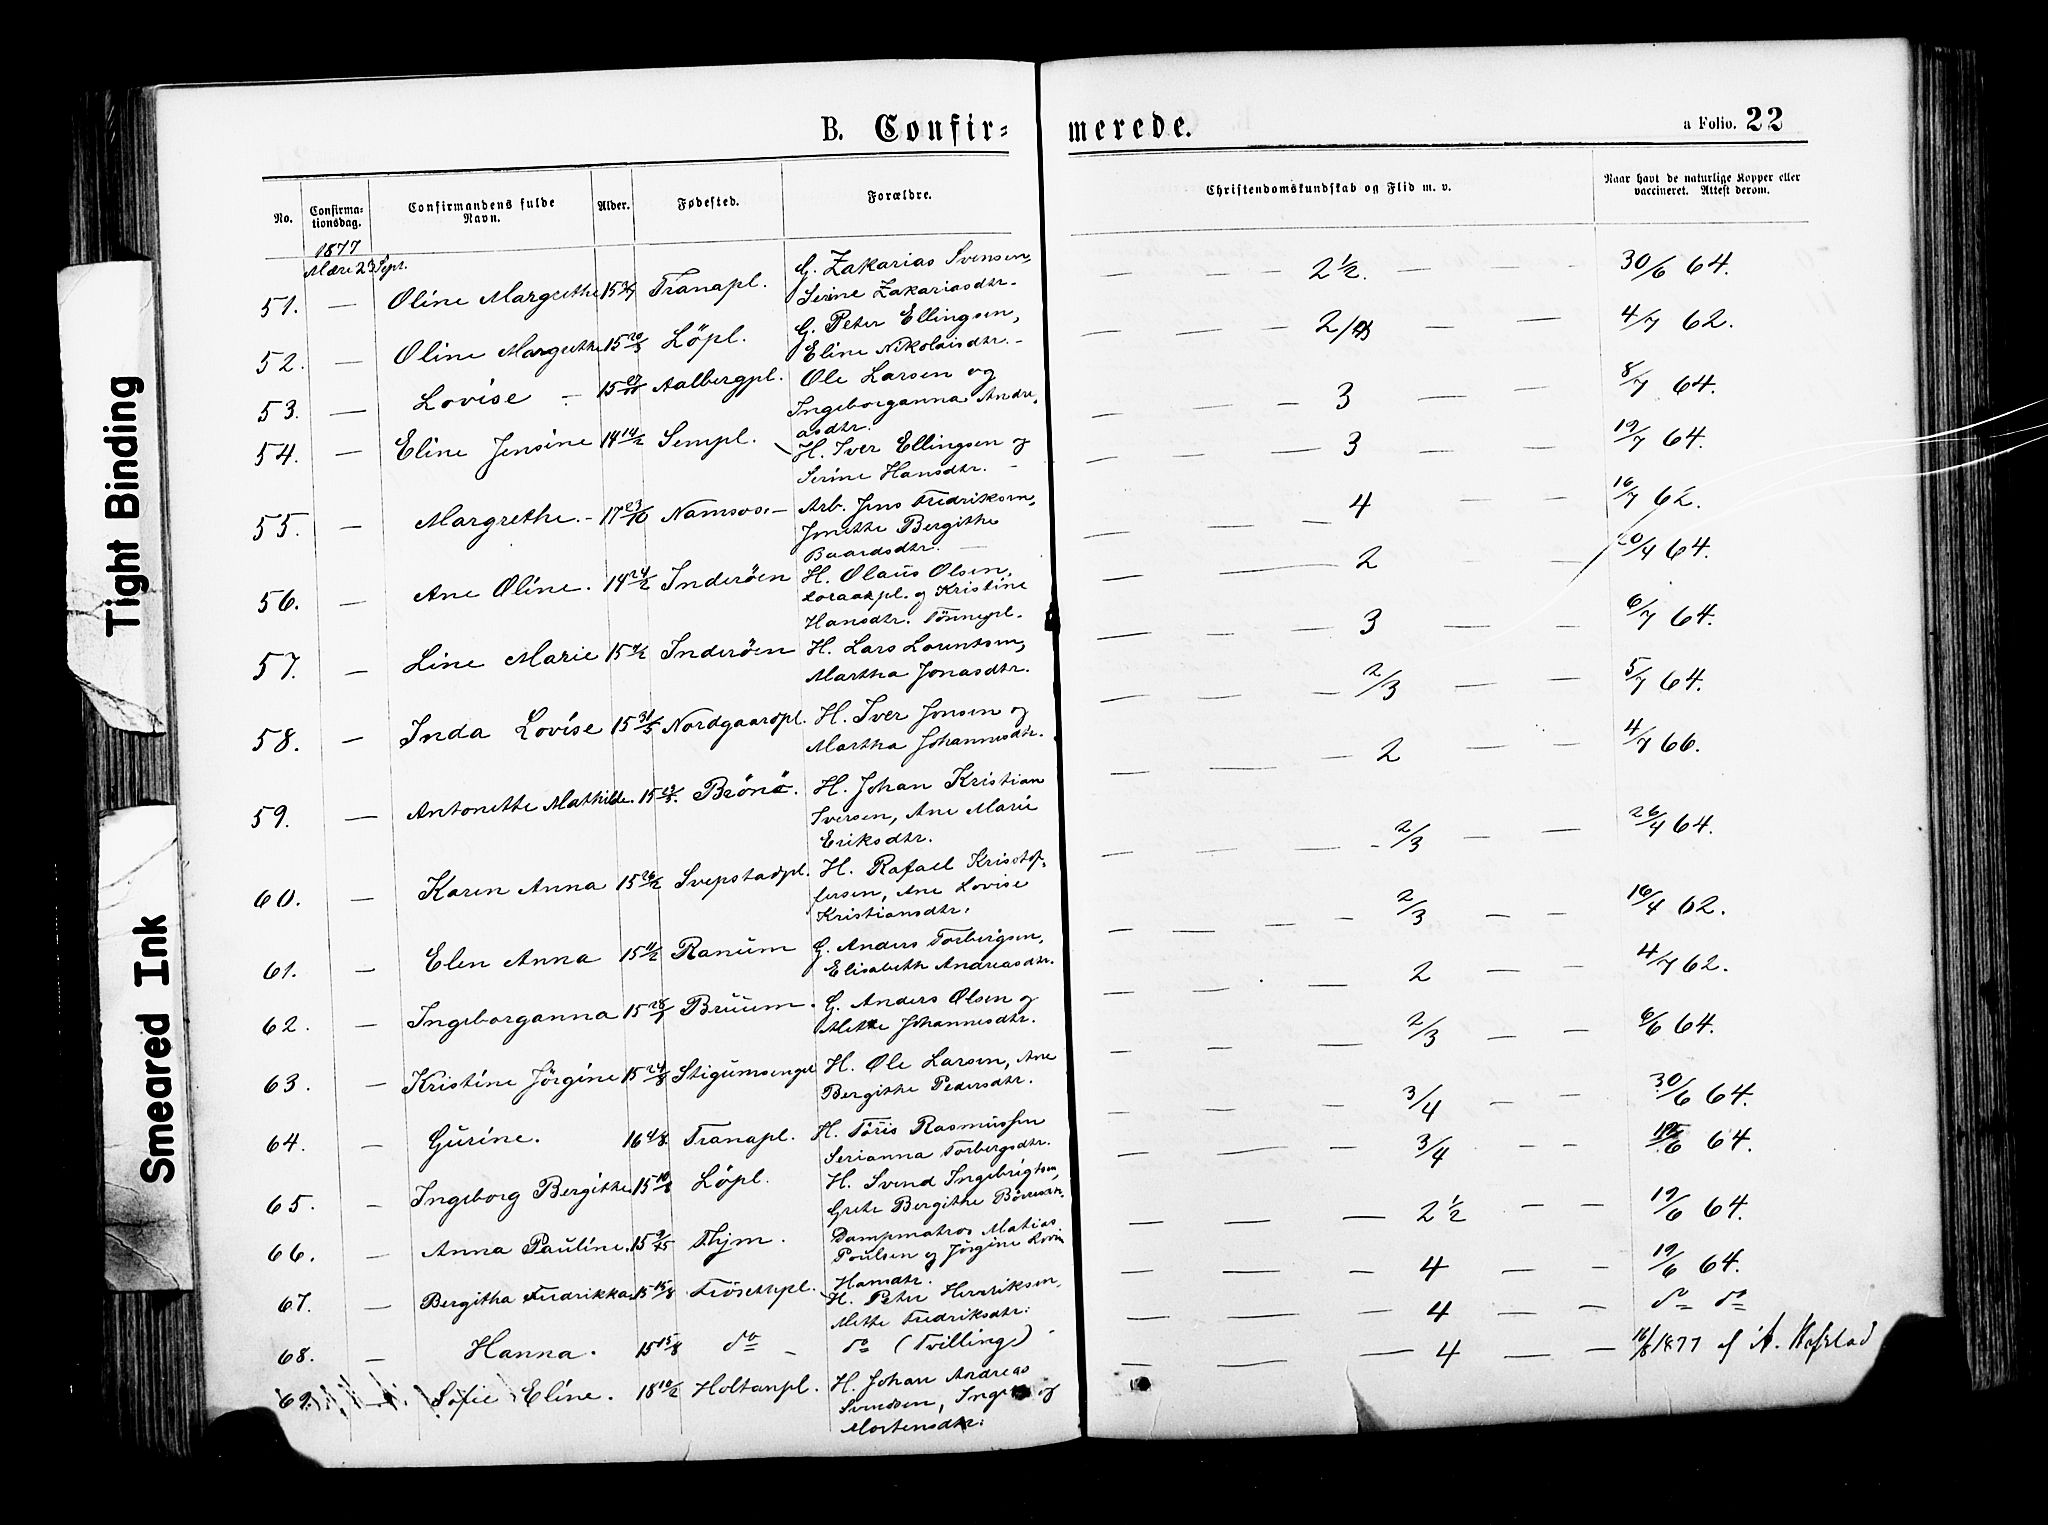 B. Confir-
merede.
a Folio. 22
No.
Confirma-
tionsdag.
Confirmandens fulde
Navn.
Alder.
Fødested.
Forældre.
Christendomskundskab og Flid m. v.
Naar havt de naturlige Kopper eller
vaccineret. Attest derom.
1877
Mære 23 Sept.
51. — Oline Margrethe 15 Tranapl. G. Zakarias Svensen, — — — 2 1/2. — — 30/6 64.
Serine Zakariasdtr. -
52. — Oline Margrethe 15 20/3 Löpl. G. Peter Ellingsen, — — — 2/3 — — 4/7 62.
Eline Nikolaisdtr. -
53. — Lovise - 15 Aalbergpl. Ole Larsen og — — — 3 — — 8/7 64.
Ingeborganna Andre-
asdtr.
54. — Eline Jensine 14 14/2 Sempl. H. Iver Ellingsen og — — — 3 — — 19/7 64.
Serine Hansdtr. -
55. — Margrethe. - 17 23/10 Namsos. - Arb. Jens Fredriksen, — — — 4 — — 16/7 62.
Jmette Bergithe
Baardsdtr. —
56. — Ane Oline. 14 24/2 Inderöen H. Olaus Olsen, — — — 2 — — 20/4 64.
Loraaspl. og Kristine
Hansdtr. Tönnepl.
57. — Line Marie 15 Inderöen H. Lars Lorentsen, — — — 3 — — 6/7 64.
Martha Jonasdtr.
58. — Inda Lovise 15 31/5 Nordgaardpl. H. Iver Jonsen og — — — 2/3 — — 5/7 64.
Martha Johannesdtr.
59. — Antonette Mathilde. 15 Brönö. H. Johan Kristian — — — 2 — — 4/7 66.
Iversen, Ane Marie
Eriksdtr.
60. — Karen Anna 15 26/2 Svepstadpl. H. Rafael Kristof- — — — 2/3 — — 26/4 64.
fersen, Ane Lovise
Kristiansdtr.
61. — Elen Anna 15 11/2 Ranum G. Anders Torbergsen, — — — 2/3 — — 16/4 62.
Elisabeth Andreasdtr.
62. — Ingeborganna 15 28/7 Bruum. G. Anders Olsen og — — — 2 — — 4/7 62.
Mette Johannesdtr.
63. — Kristine Jörgine 15 24/8 Stigumsengpl H. Ole Larsen, Ane — — — 2/3 — — 6/6 64.
Bergithe Pedersdtr.
64. — Gurine. 16 Tranapl. H. Töris Rasmussen — — — 3/4 — — 30/6 64.
Serianna Torbergsdtr.
65. — Ingeborg Bergithe 15 10/8 Löpl. H. Svend Ingebrigtsen, — — — 3/4 — — 64.
Grete Bergithe
66. — Anna Pauline. 15 Thjm. Dampmatros Matias — — — 2 1/2 — — 19/6 64.
Poulsen og Jörgine Lovise
Hansdtr.
67. — Bergitha Fredrikka 15 15/8 Frösethpl. H. Peter Henriksen, — — — 4 — — 19/6 64.
Mette Fredriksdtr.
68. — Hanna. 15 15/8 do — do (Tvilling) — — — 4 — — do do
69. — Sofie Eline. 18 10/2 Holtanpl. H. Johan Andreas — — — 4 — — 16/8 1877 af A. Hofstad
Svendsen, og
Mortensdtr.
Tight Binding
Smeared Ink